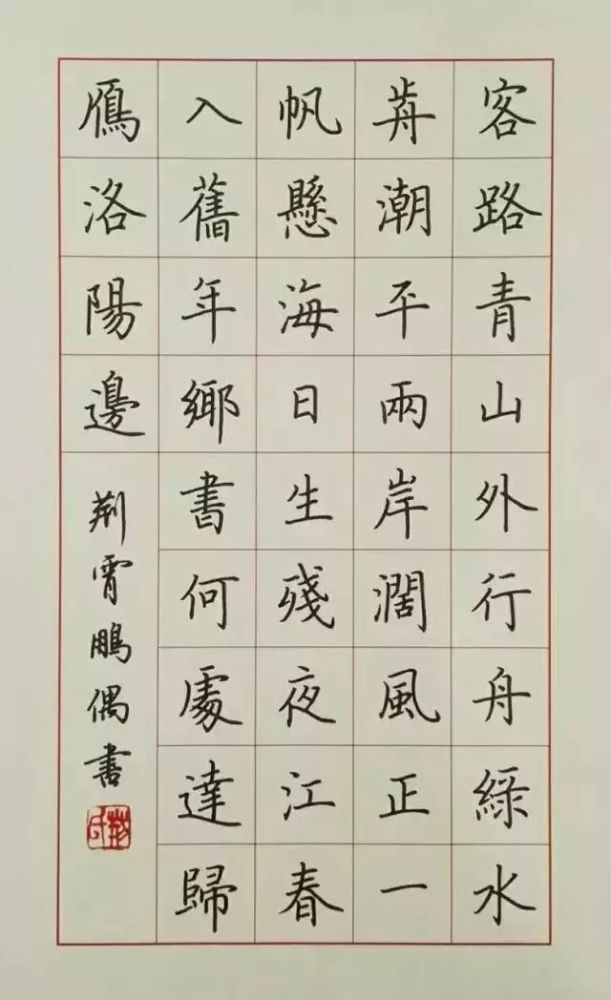 客路青山外行舟綠水
前潮平兩岸闊風正一
帆懸海日生殘夜江春
入舊年鄉書何處達歸
鴈洛陽邊
荆霄鵬偶書